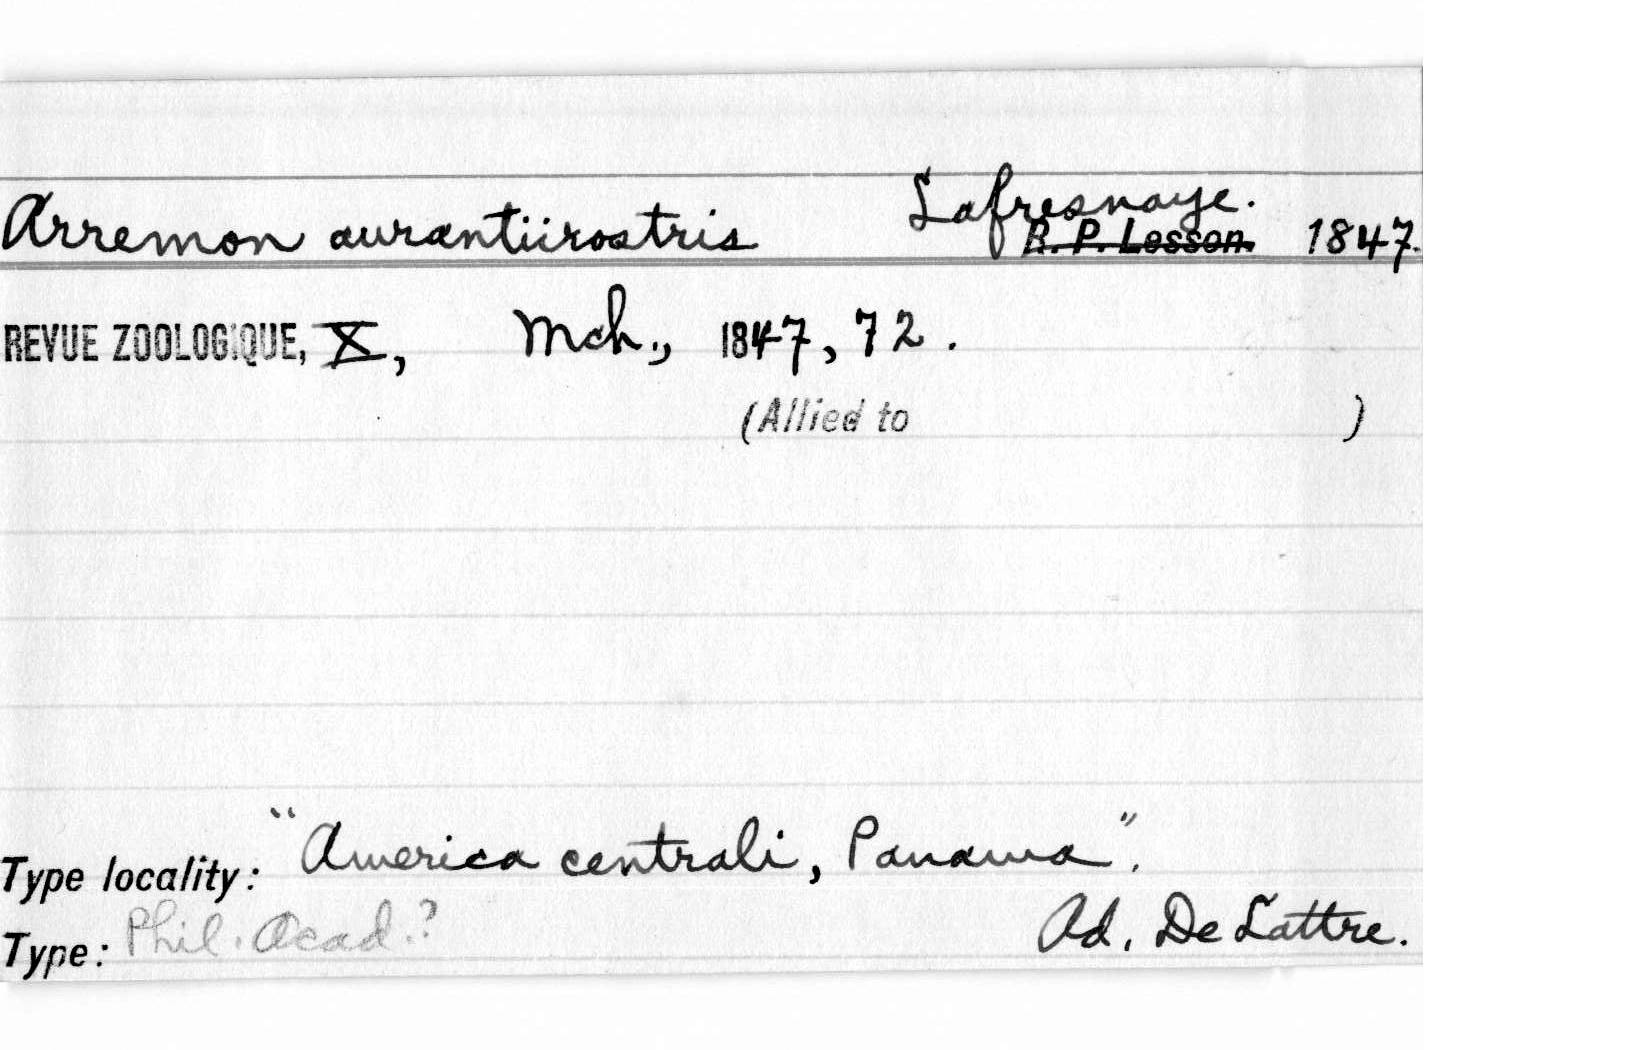 Arremon aurantiirostris Lafresnaye.
R. P. Lesson. 1847.
REVUE ZOOLOGIQUE, X, Mch., 1847, 72.
(Allied to )
Type locality: "America centrali, Panama".
Type: Phil. Acad.? Ad. De Lattre.